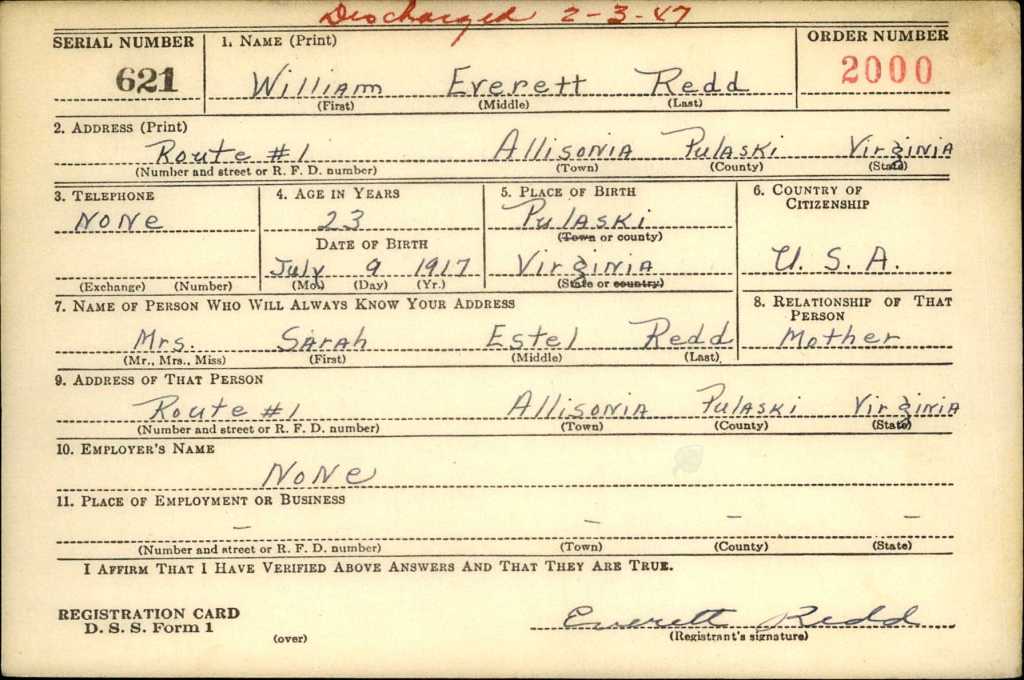 Discharged 2-3-47
SERIAL NUMBER 1. NAME (Print) ORDER NUMBER
621 William Everett Redd 2000
(First) (Middle) (Last)
2. ADDRESS (Print)
Route #1 Allisonia Pulaski Virginia
(Number and street or R. F. D. number) (Town) (County) (State)
3. TELEPHONE 4. AGE IN YEARS 5. PLACE OF BIRTH 6. COUNTRY OF CITIZENSHIP
None 23 Pulaski
(Town or county)
DATE OF BIRTH
July 9 1917 Virginia U. S. A.
(Exchange) (Number) (Mo.) (Day) (Yr.) (State or country)
7. NAME OF PERSON WHO WILL ALWAYS KNOW YOUR ADDRESS 8. RELATIONSHIP OF THAT PERSON
Mrs. Sarah Estel Redd Mother
(Mr., Mrs., Miss) (First) (Middle) (Last)
9. ADDRESS OF THAT PERSON
Route #1 Allisonia Pulaski Virginia
(Number and street or R. F. D. number) (Town) (County) (State)
10. EMPLOYER'S NAME
None
11. PLACE OF EMPLOYMENT OR BUSINESS
– – – –
(Number and street or R. F. D. number) (Town) (County) (State)
I AFFIRM THAT I HAVE VERIFIED ABOVE ANSWERS AND THAT THEY ARE TRUE.
REGISTRATION CARD
D. S. S. Form 1 (over)
Everett Redd
(Registrant's signature)